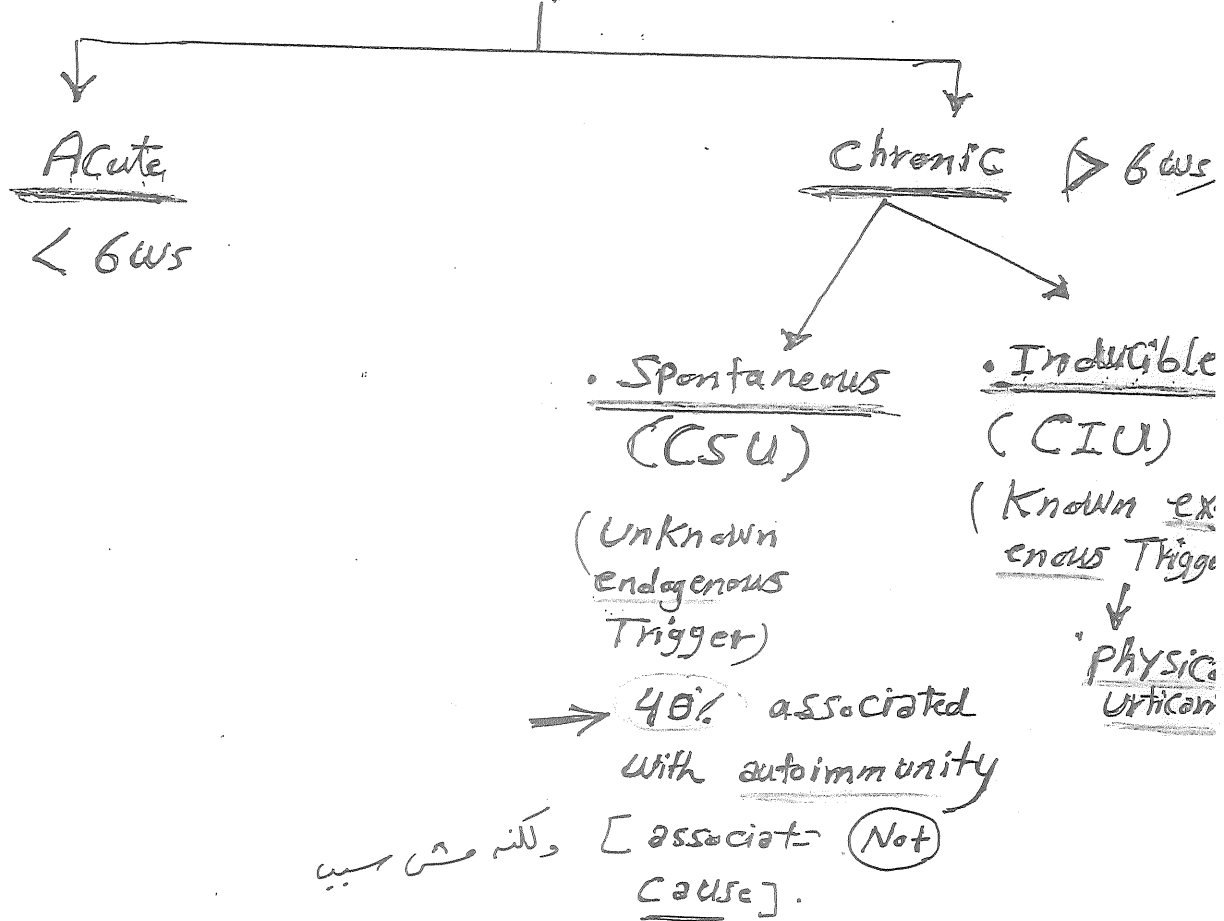 Acute
< 6 ws
Chronic > 6 ws
. Spontaneous
(CSU)
(Unknown
endogenous
Trigger)
→ 40% associated
with autoimmunity
[associat- Not
cause].
ولكنه مش سبب
. Inducible
(CIU)
(Known ex
enous Trigge
↓
physica
Urticari